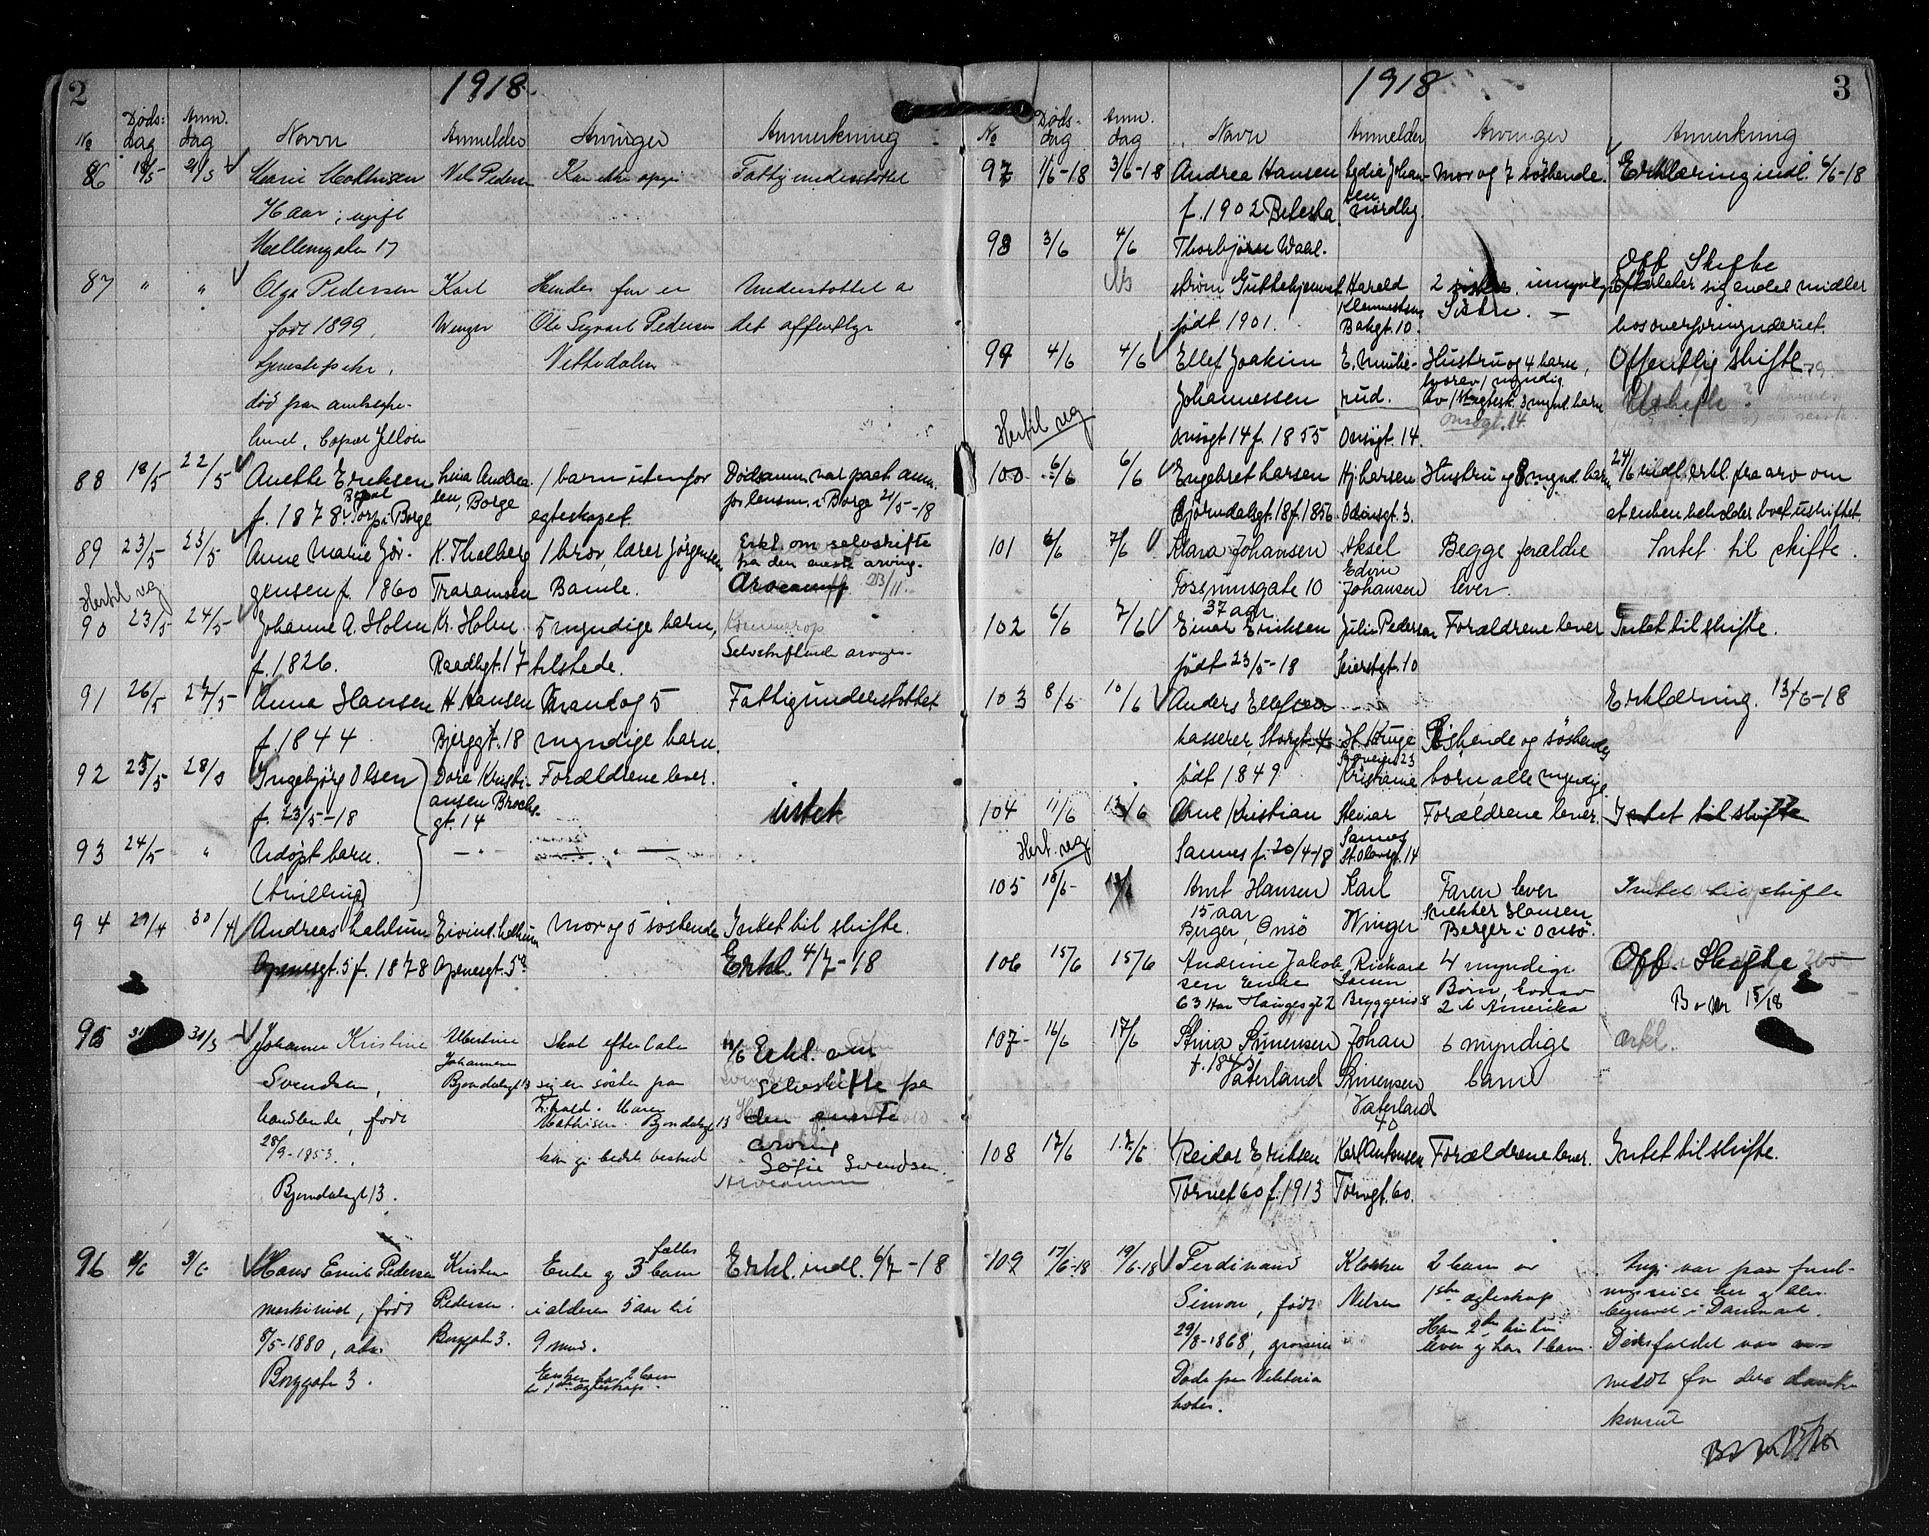 2
1918
No Døds-dag Anm. dag Navn Anmelder Arvinger Anmerkning
86 18/5 21/5 Marie Mathisen Nils Pedersen Kan ikke opgi Fattigunderstøttet
76 aar, ugift
Mellemgaten 17
87 " " Olga Pedersen Karl Hendes far er Understøttet av
født 1899, Winger Ole Sigvart Pedersen det offentlige
tjenestepike, Vettedalen
død paa amtssyke-
huset, Copav Jeløen
88 18/5 22/5 Anette Eriksen Lina Andrea- 1 barn utenfor Dødsanm. var paat. anm.
f. 1878 Torp i Borge sen, Borge egteskapet. for lensm. i Borge 21/5-18
89 23/5 23/5 Anne Marie Jør- K. Thalberg 1 bror, lærer Jørgensen Erkl. om selvskifte
fra den eneste arving.
gensen f. 1860 Traramsen Bamle. 23/11.
Hertil veg
90 23/5 24/5 Johanne A. Holm Kr. Holm 5 myndige barn,
f. 1826. Raadhgt. 17 tilstede. Selvskiftende arvinger.
91 26/5 27/5 Anna Hansen H. Hansen Mand og 5 Fattigunderstøttet
f. 1844 Bjerggt. 18 myndige barn.
92 25/5 28/5 Ingebjørg Olsen Dore Kristi- Forældrene lever.
f. 23/5-18 ansen Brochs- intet
gt. 14
93 24/5 " Udøpt barn. — " — — " —
(tvilling)
94 29/4 30/4 Andreas Lahlum Eivind Lahlum Mor og 5 søskende Intet til skifte.
Apenesgt. 5 f. 1878 Apenesgt. 5 Erkl. 4/7-18
95 31/5 Johanne Kristine Albertine Skal efterlate 11/6 Erkl. om
Johannesen
Svendsen, Bjørndalsgt 13 sig en søster paa selvskifte fra
handlende, født Maren Mathisen. Bjørndalsgt 13 den eneste
28/9-1853. kan gi bedre besked arving
Sofie Svendsen.
Bjørndalsgt 13.
96 1/6 3/6 Hans Emil Pedersen Kristen Enke og 3 fælles barn Erkl. indl. 6/7-18
maskinist, født Pedersen. i alderen 5 aar til
8/5-1880, Borggata 3. 9 mnd.
Borggata 3. Enken har 2 barn
av 1ste egteskap.
3
1918
No Døds-dag Anm. dag Navn Anmelder Arvinger Anmerkning
97 1/6-18 3/6-18 Andrea Hansen Lydia Johan- Mor og 7 søskende. Erklæring indl. 6/6-18
sen
f. 1902 Betesta Nordbg.
98 3/6 4/6 Thorbjørn Wahl-
Off. Skifte
strøm Guttehjemmet Harald 2 umyndige Efterlater sig endel midler
født 1901. Klemmetsen Søstre. — hos overformynderiet.
Bakgt. 10.
99 4/6 4/6 Ellef Joakim E. Mulle- Hustru og 4 barn, Offentlig skifte.
hvorav 1 myndig
Johannessen rud. av 1 egtesk. 3 mynd. barn Uskifte?
Hertil veg
Onsøgt 14 f. 1855 Onsøgt. 14.
100 6/6 6/6 Engebret Larsen Hj. Larsen Hustru og 8 mynd. barn 24/6 indl. erkl. fra arv. om
Bjørndalsgt. 18 f. 1856. Odinsgt. 3. at enken beholder boet uskiftet.
101 6/6 7/6 Klara Johansen Aksel Begge forældre Intet til skifte.
Edvin
Fossumsgate 10 Johansen lever.
37 aar
102 6/6 7/6 Einar Eriksen Julie Pedersen Forældrene lever Intet til skifte.
født 23/5-18 Seierstgt. 10
103 8/6 10/6 Anders Ellefsen — " — Erklæring. 13/6-18
kasserer, Storgt. 43 H. Kruge Søskende og søskende
født 1849 Kristiania børn alle myndige
104 11/6 12/6 Arne Kristian Steinar Forældrene lever. Intet til skifte
Hert. veg
Sannes f. 20/4-18 Sannes
St. Olavsgt. 14
105 15/6 Arnt Hansen Karl Faren lever Intet til skifte
15 aar
Berger, Onsø Winger Snekker Hansen
Berger i Onsø.
106 15/6 15/6 Andrine Jakob- Rickard 4 myndige Off. Skifte
sen Enke Børn, hvorav
63 Hans Haugesgt 2 Bryggerid 8 2 i Amerika 15/18
107 16/6 17/6 Stina Simensen Johan 6 myndige erkl.
f. 1843 Vaterland Simensen barn
Vaterland
40
108 17/6 17/6 Reidar Eriksen Karl Antonsen Forældrene lever. Intet til skifte.
Torvet 60 f. 1913 Torvgt. 60.
109 17/6-18 19/6-18 Ferdinand Klokker 2 barn av
Simon, født Nilsen 1ste egteskap her og blev
begravet i Danmark.
29/8-1868, grosserer Han 2den hustru
lever og har 1 barn. Dødsfaldet var
Døde paa Viktoria meldt for den danske
hotel. konsul